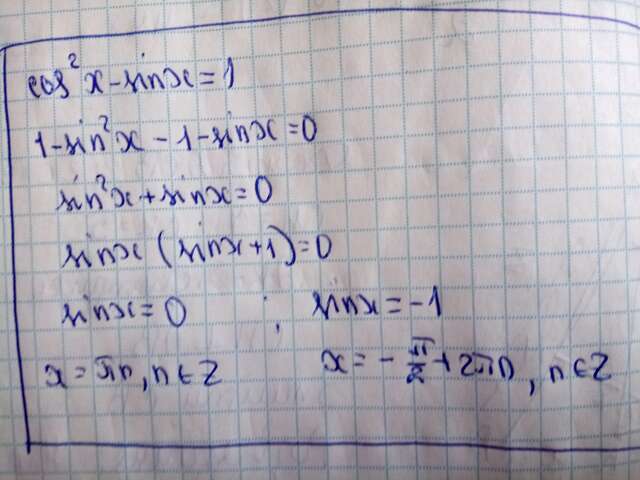 cos²x - sinx = 1
1 - sin²x - 1 - sinx = 0
sin²x + sinx = 0
sinx (sinx + 1) = 0
sinx = 0 ; sinx = -1
x = πn, n ∈ Z x = - π/2 + 2πn, n ∈ Z